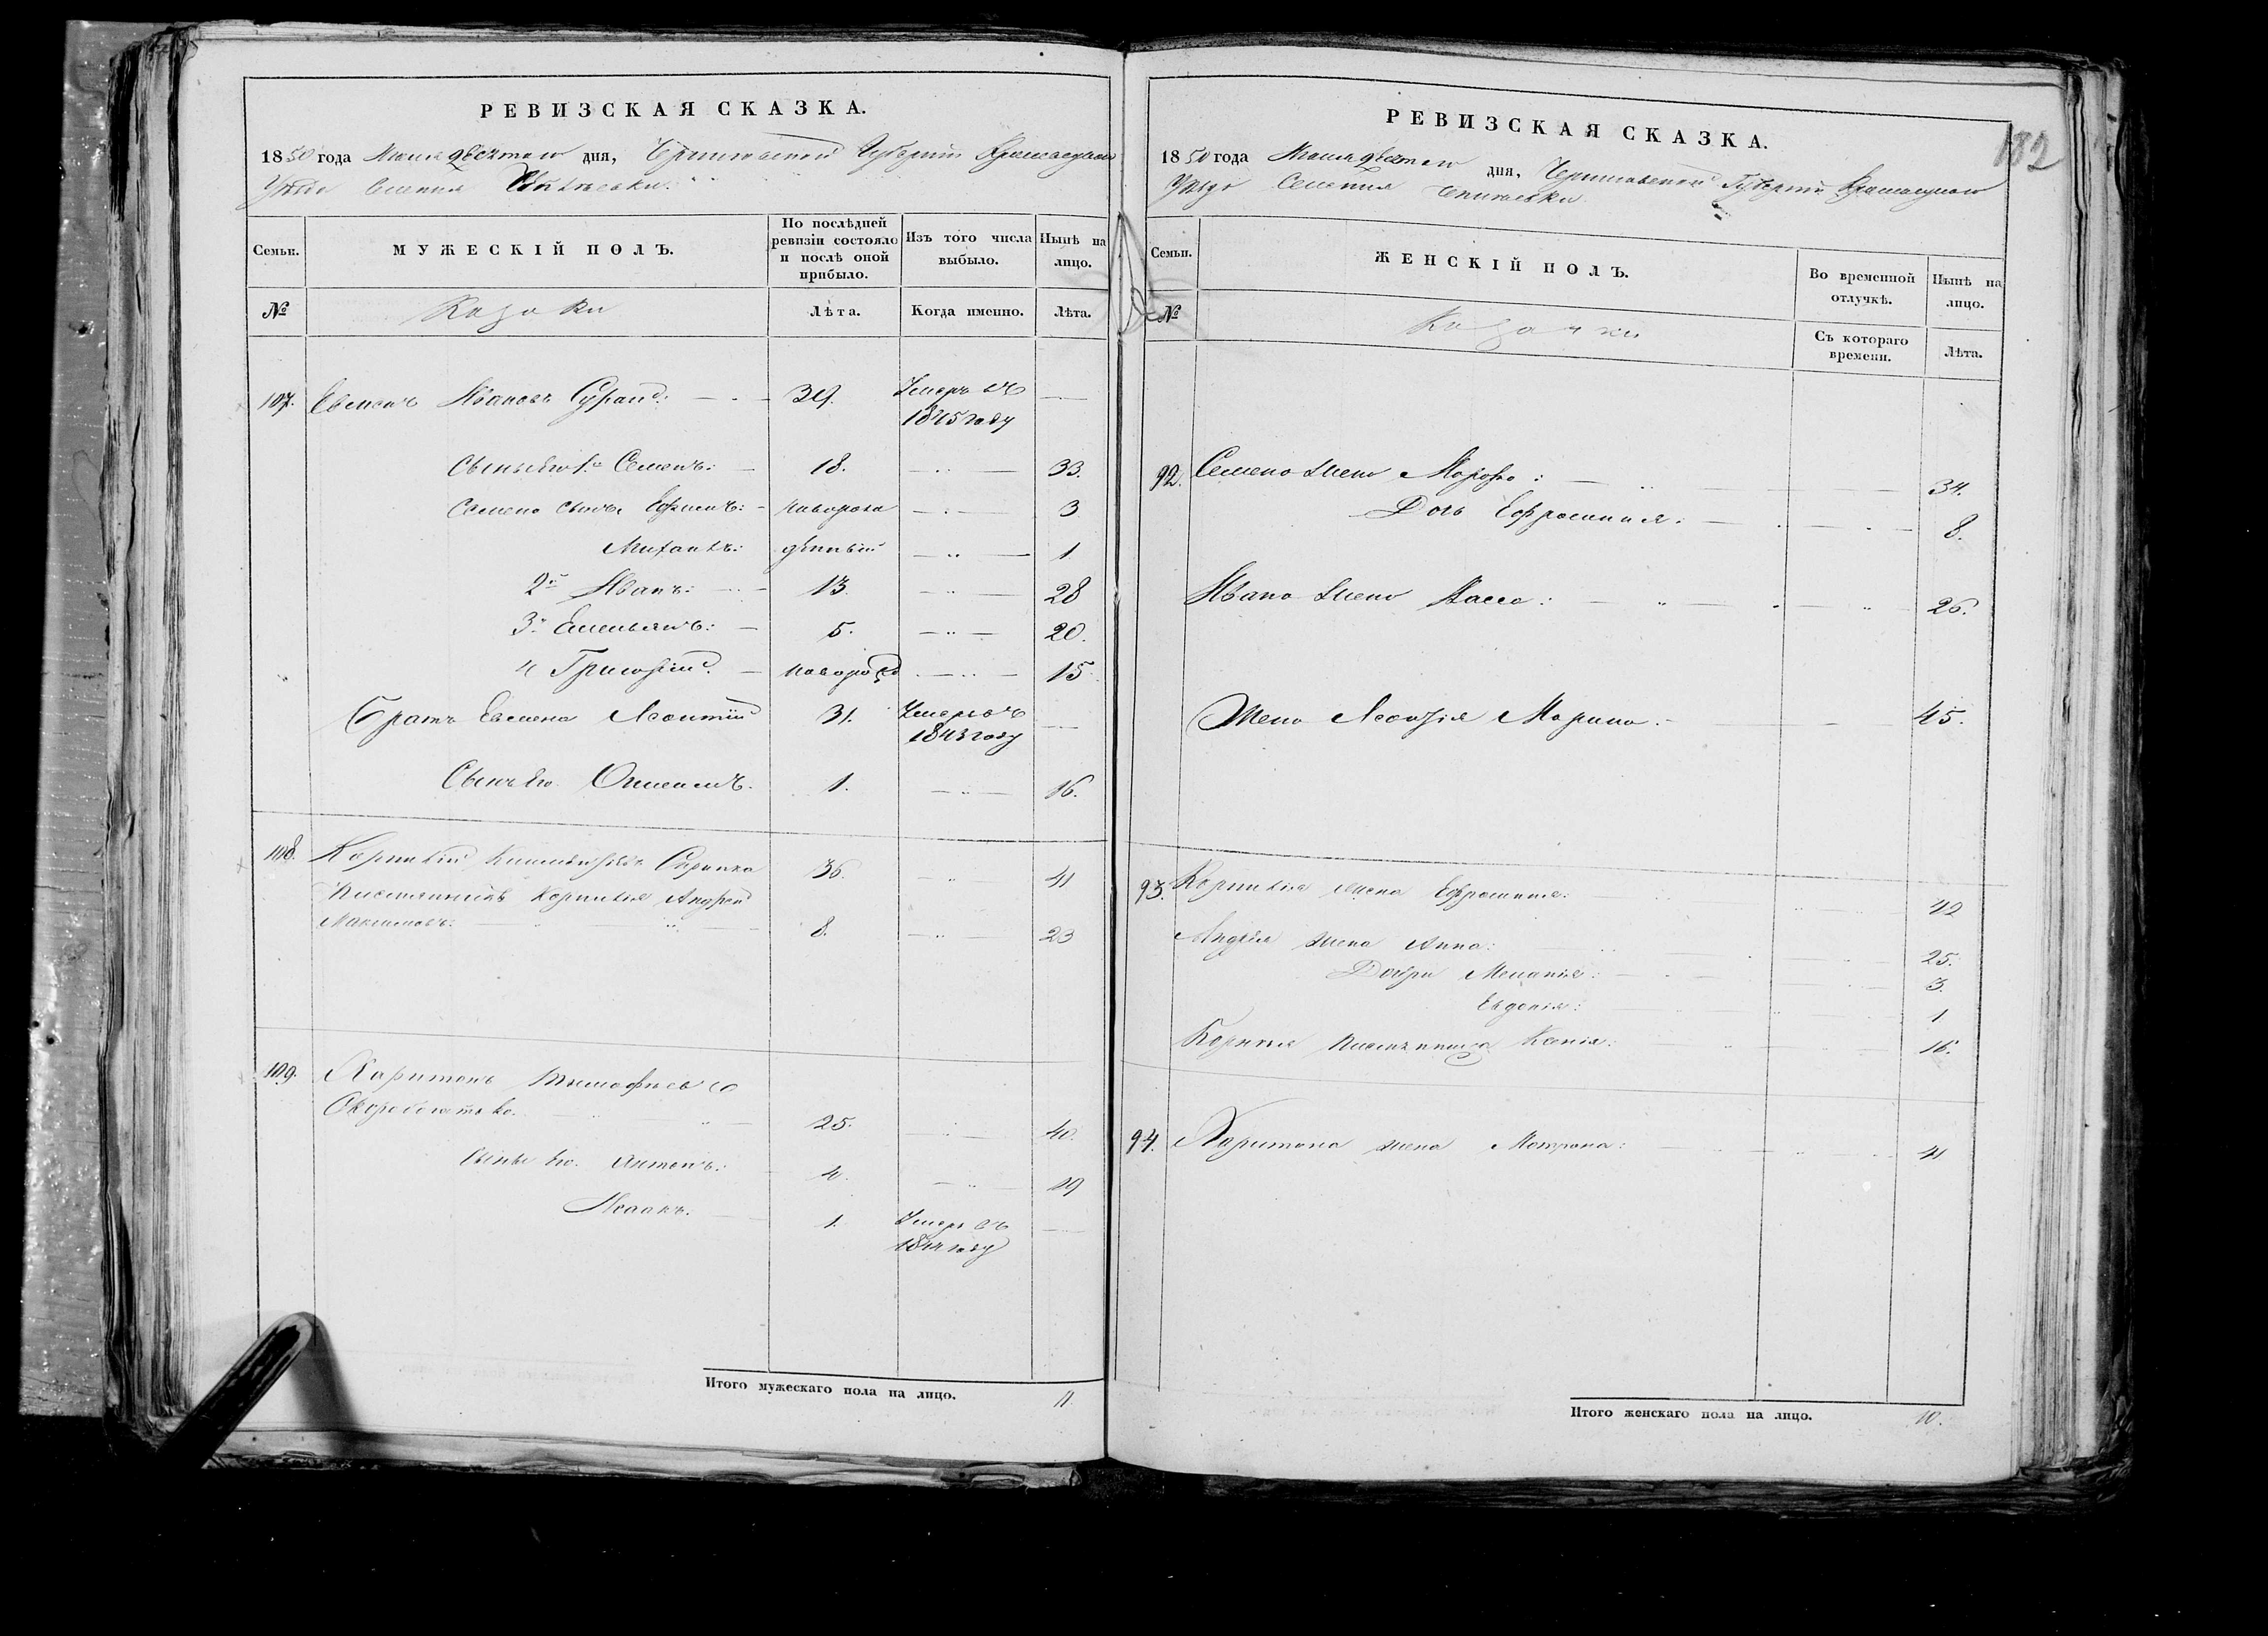 РЕВИЗСКАЯ СКАЗКА.
1850 года дня, Черниговской Губернии
Уезда Селения
Семьи. МУЖЕСКІЙ ПОЛЪ. По послѣдней ревизіи состояло и послѣ оной прибыло. Изъ того числа выбыло. Нынѣ на лицо.
№ Козаки Лѣта. Когда именно. Лѣта.
107. Евменъ Ивановъ 39. Умеръ въ 1845 году
Сыны Его 1й Семенъ: 18. 33.
Семена сыны Ефимъ: новорож 3
Михаилъ: денный 1
2й Иванъ: 13. 28
3й Емельянъ: 5. 20.
4 Григорій. новорож 15
Братъ Евмена Леонтій 31. Умеръ въ 1843 году
Сынъ Его 1. 16.
108. Корнилій 36. 41
Корнилія Андрей
Максимовъ: 8. 23
109. Харитонъ Тимофеевъ
25. 40.
Сыны Его. Антонъ: 4. 19
Исаакъ. 1. Умеръ въ 1844 году
Итого мужескаго пола на лицо. 11
РЕВИЗСКАЯ СКАЗКА.
182
1850 года дня, Черниговской Губернии
Уезда Селения
Семьи. ЖЕНСКІЙ ПОЛЪ. Во временной отлучкѣ. Нынѣ на лицо.
№ Козачки Съ котораго времени. Лѣта.
92. Семена жена 34.
Дочь Ефросинія. 8.
Ивана жена Васса: 26.
Жена Леонтія Марина. 45.
93. Корнилія жена Ефросинія: 42
Андрея жена Анна: 25.
Дочери Меланія: 3.
Евдокія: 1
Корнилія Ксенія: 16.
94. Харитона жена Мотрона: 41
Итого женскаго пола на лицо. 10.